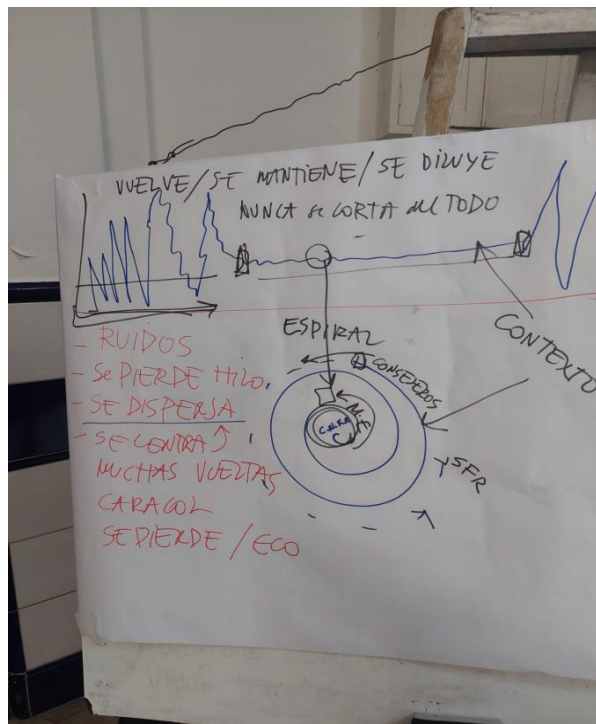 VUELVE/SE MANTIENE/SE DILUYE
NUNCA SE CORTA del TODO
CONTEXTO
ESPIRAL
CONSEJEROS
M.E
SFR
- RUIDOS
- SE PIERDE HILO.
- SE DISPERSA
- SE CENTRA
MUCHAS VUELTAS
CARACOL
SE PIERDE / ECO